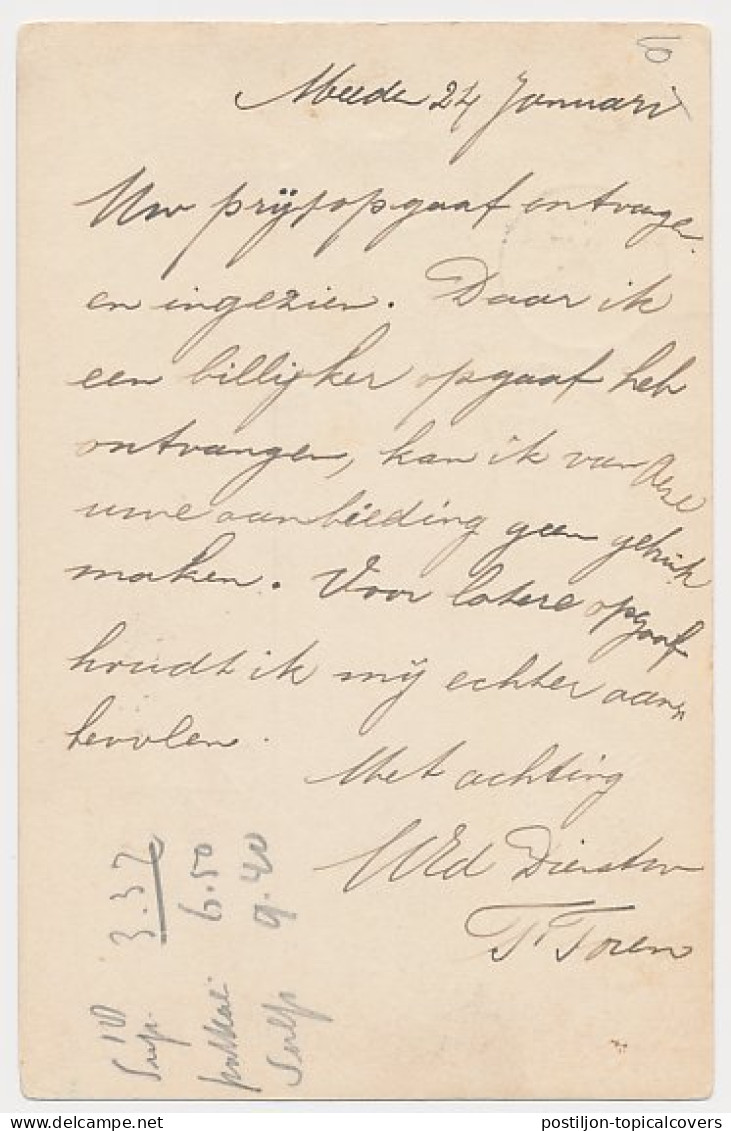 Meeden 24 Januari
Uw prijsopgaaf ontvangen
en ingezien. Daar ik
een billijker opgaaf heb
ontvangen, kan ik van deze
uwe aanbieding geen gebruik
maken. Voor latere opgaaf
houdt ik mij echter aan-
bevolen.
Met achting
WEd Dienstw
T. Toren
10
Sup. 3.37
6.50
Sulf 9.40
postiljon-topicalcovers